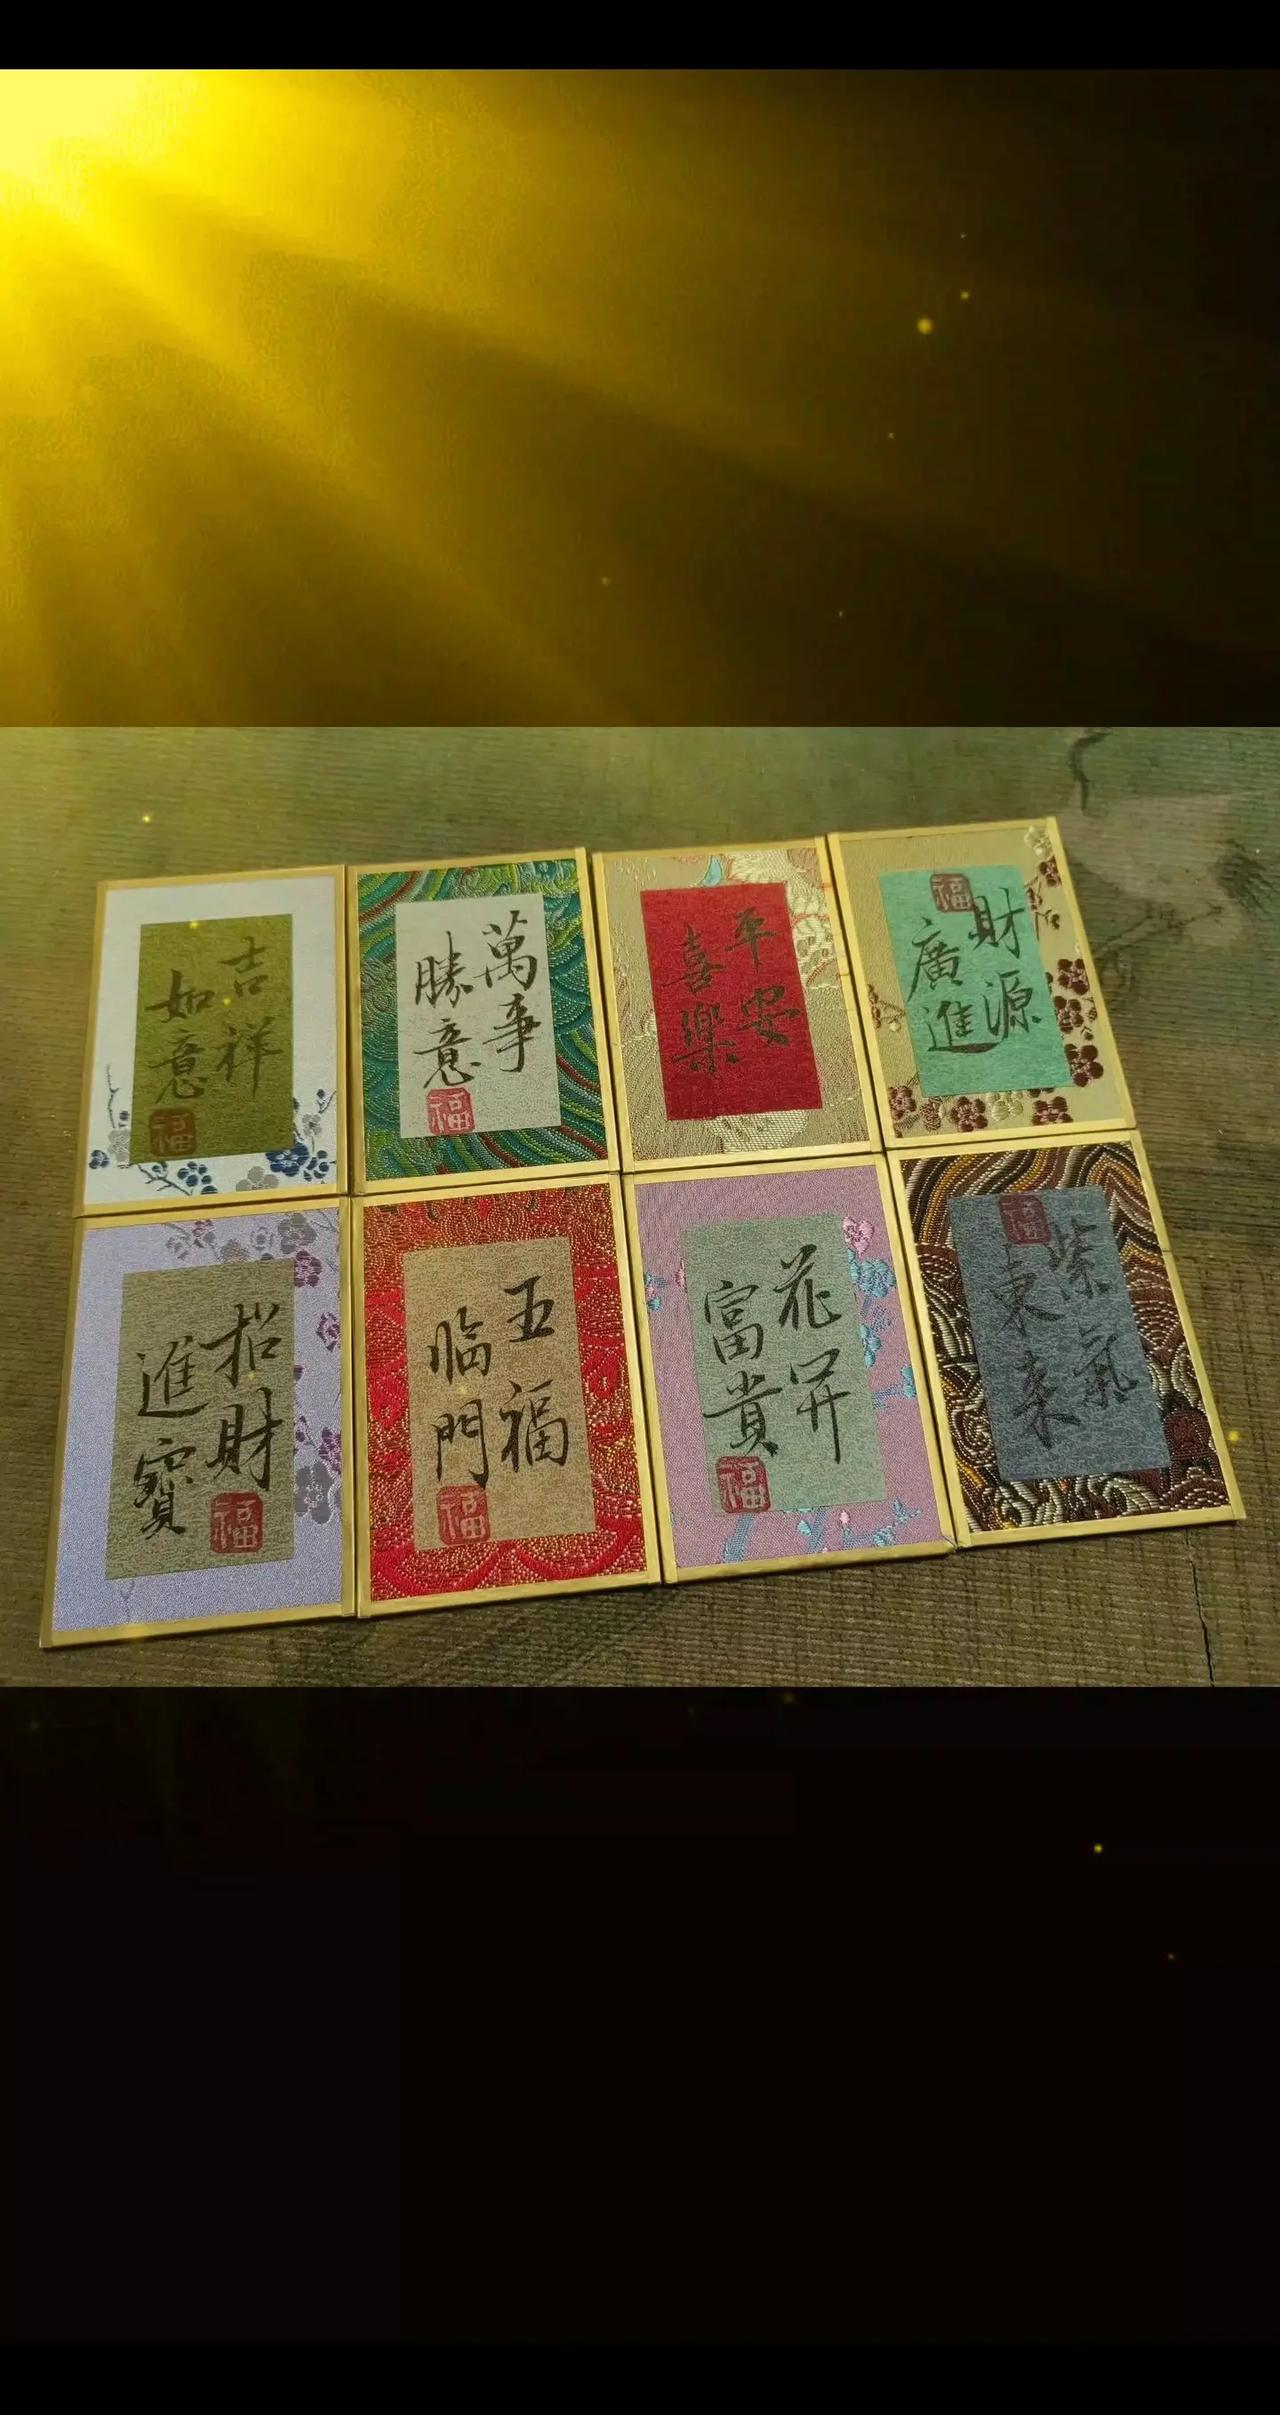 吉祥
如意
福
萬事
勝意
福
平安
喜樂
財源
廣進
福
招財
進寶
福
五福
临門
福
花開
富貴
福
紫氣
東来
福